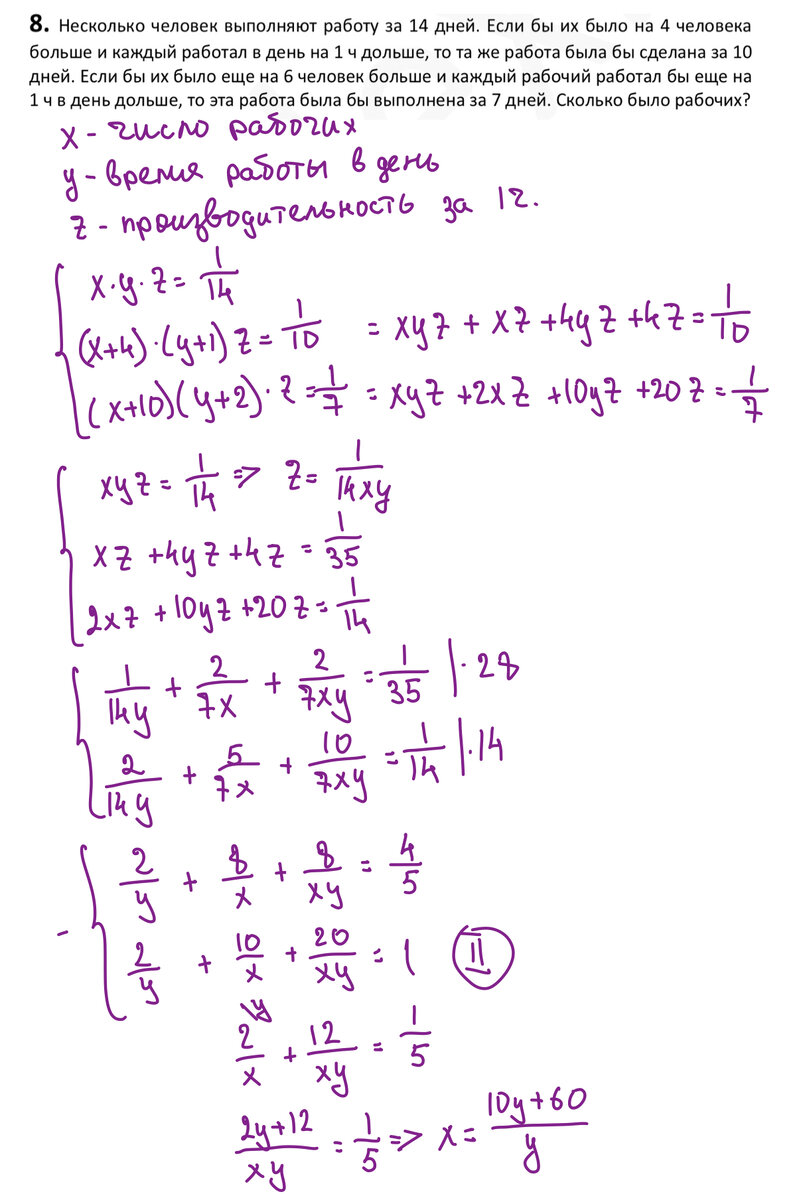 8. Несколько человек выполняют работу за 14 дней. Если бы их было на 4 человека
больше и каждый работал в день на 1 ч дольше, то та же работа была бы сделана за 10
дней. Если бы их было еще на 6 человек больше и каждый рабочий работал бы еще на
1 ч в день дольше, то эта работа была бы выполнена за 7 дней. Сколько было рабочих?
x - число рабочих
y - время работы в день
z - производительность за 1ч.
x·y·z = 1/14
(x+4)·(y+1)z = 1/10 = xyz + xz + 4yz + 4z = 1/10
(x+10)(y+2)·z = 1/7 = xyz + 2xz + 10yz + 20z = 1/7
xyz = 1/14 => z = 1/14xy
xz + 4yz + 4z = 1/35
2xz + 10yz + 20z = 1/14
1/14y + 2/7x + 2/7xy = 1/35 |·28
2/14y + 5/7x + 10/7xy = 1/14 |·14
2/y + 8/x + 8/xy = 4/5
- 2/y + 10/x + 20/xy = 1 II
2/x \y + 12/xy = 1/5
2y+12/xy = 1/5 => x = 10y+60/y